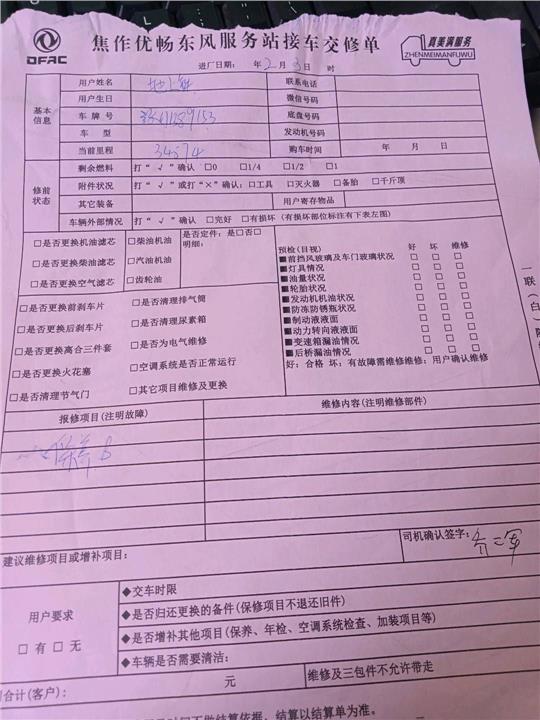 DFAC
焦作优畅东风服务站接车交修单
真美满服务
ZHENMEIMANFUWU
进厂日期： 年2月3日 时
基本信息
用户姓名
联系电话
用户生日
微信号码
车牌号
底盘号码
车型
发动机号码
当前里程 34574
购车时间 年 月 日
修前状态
剩余燃料 打“√”确认 □0 □1/4 □1/2 □1
附件状况 打“√”或打“×”确认：□工具 □灭火器 □备胎 □千斤顶
其它装备
用户寄存物品
车辆外部情况 打“√”确认 □完好 □有损坏（有损坏部位标注有下表左图）
□是否更换机油滤芯 □柴油机油 是否定件：是□否□
□是否更换柴油滤芯 □汽油机油 明细：
□是否更换空气滤芯 □齿轮油
□是否更换前刹车片 □是否清理排气筒
□是否更换后刹车片 □是否清理尿素箱
□是否更换离合三件套 □是否为电气维修
□是否更换火花塞 □空调系统是否正常运行
□是否清理节气门 □其它项目维修及更换
预检(目视) 好 坏 维修
■前挡风玻璃及车门玻璃状况 □ □ □
■灯具情况 □ □ □
■油量状况 □ □ □
■轮胎状况 □ □ □
■发动机机油状况 □ □ □
■防冻防锈瓶状况 □ □ □
■制动液液面 □ □ □
■动力转向液液面 □ □ □
■变速箱漏油情况 □ □ □
■后桥漏油情况 □ □ □
好：合格 坏：有故障需维修维修：用户确认维修
一联（白）
报修项目(注明故障)
维修内容(注明维修部件)
保养
建议维修项目或增补项目：
司机确认签字：
用户要求
□有 □无
◆交车时限
◆是否归还更换的备件(保修项目不退还旧件)
◆是否增补其他项目(保养、年检、空调系统检查、加装项目等)
◆车辆是否需要清洁：
合计(客户)： 元
维修及三包件不允许带走
不做结算依据，结算以结算单为准。